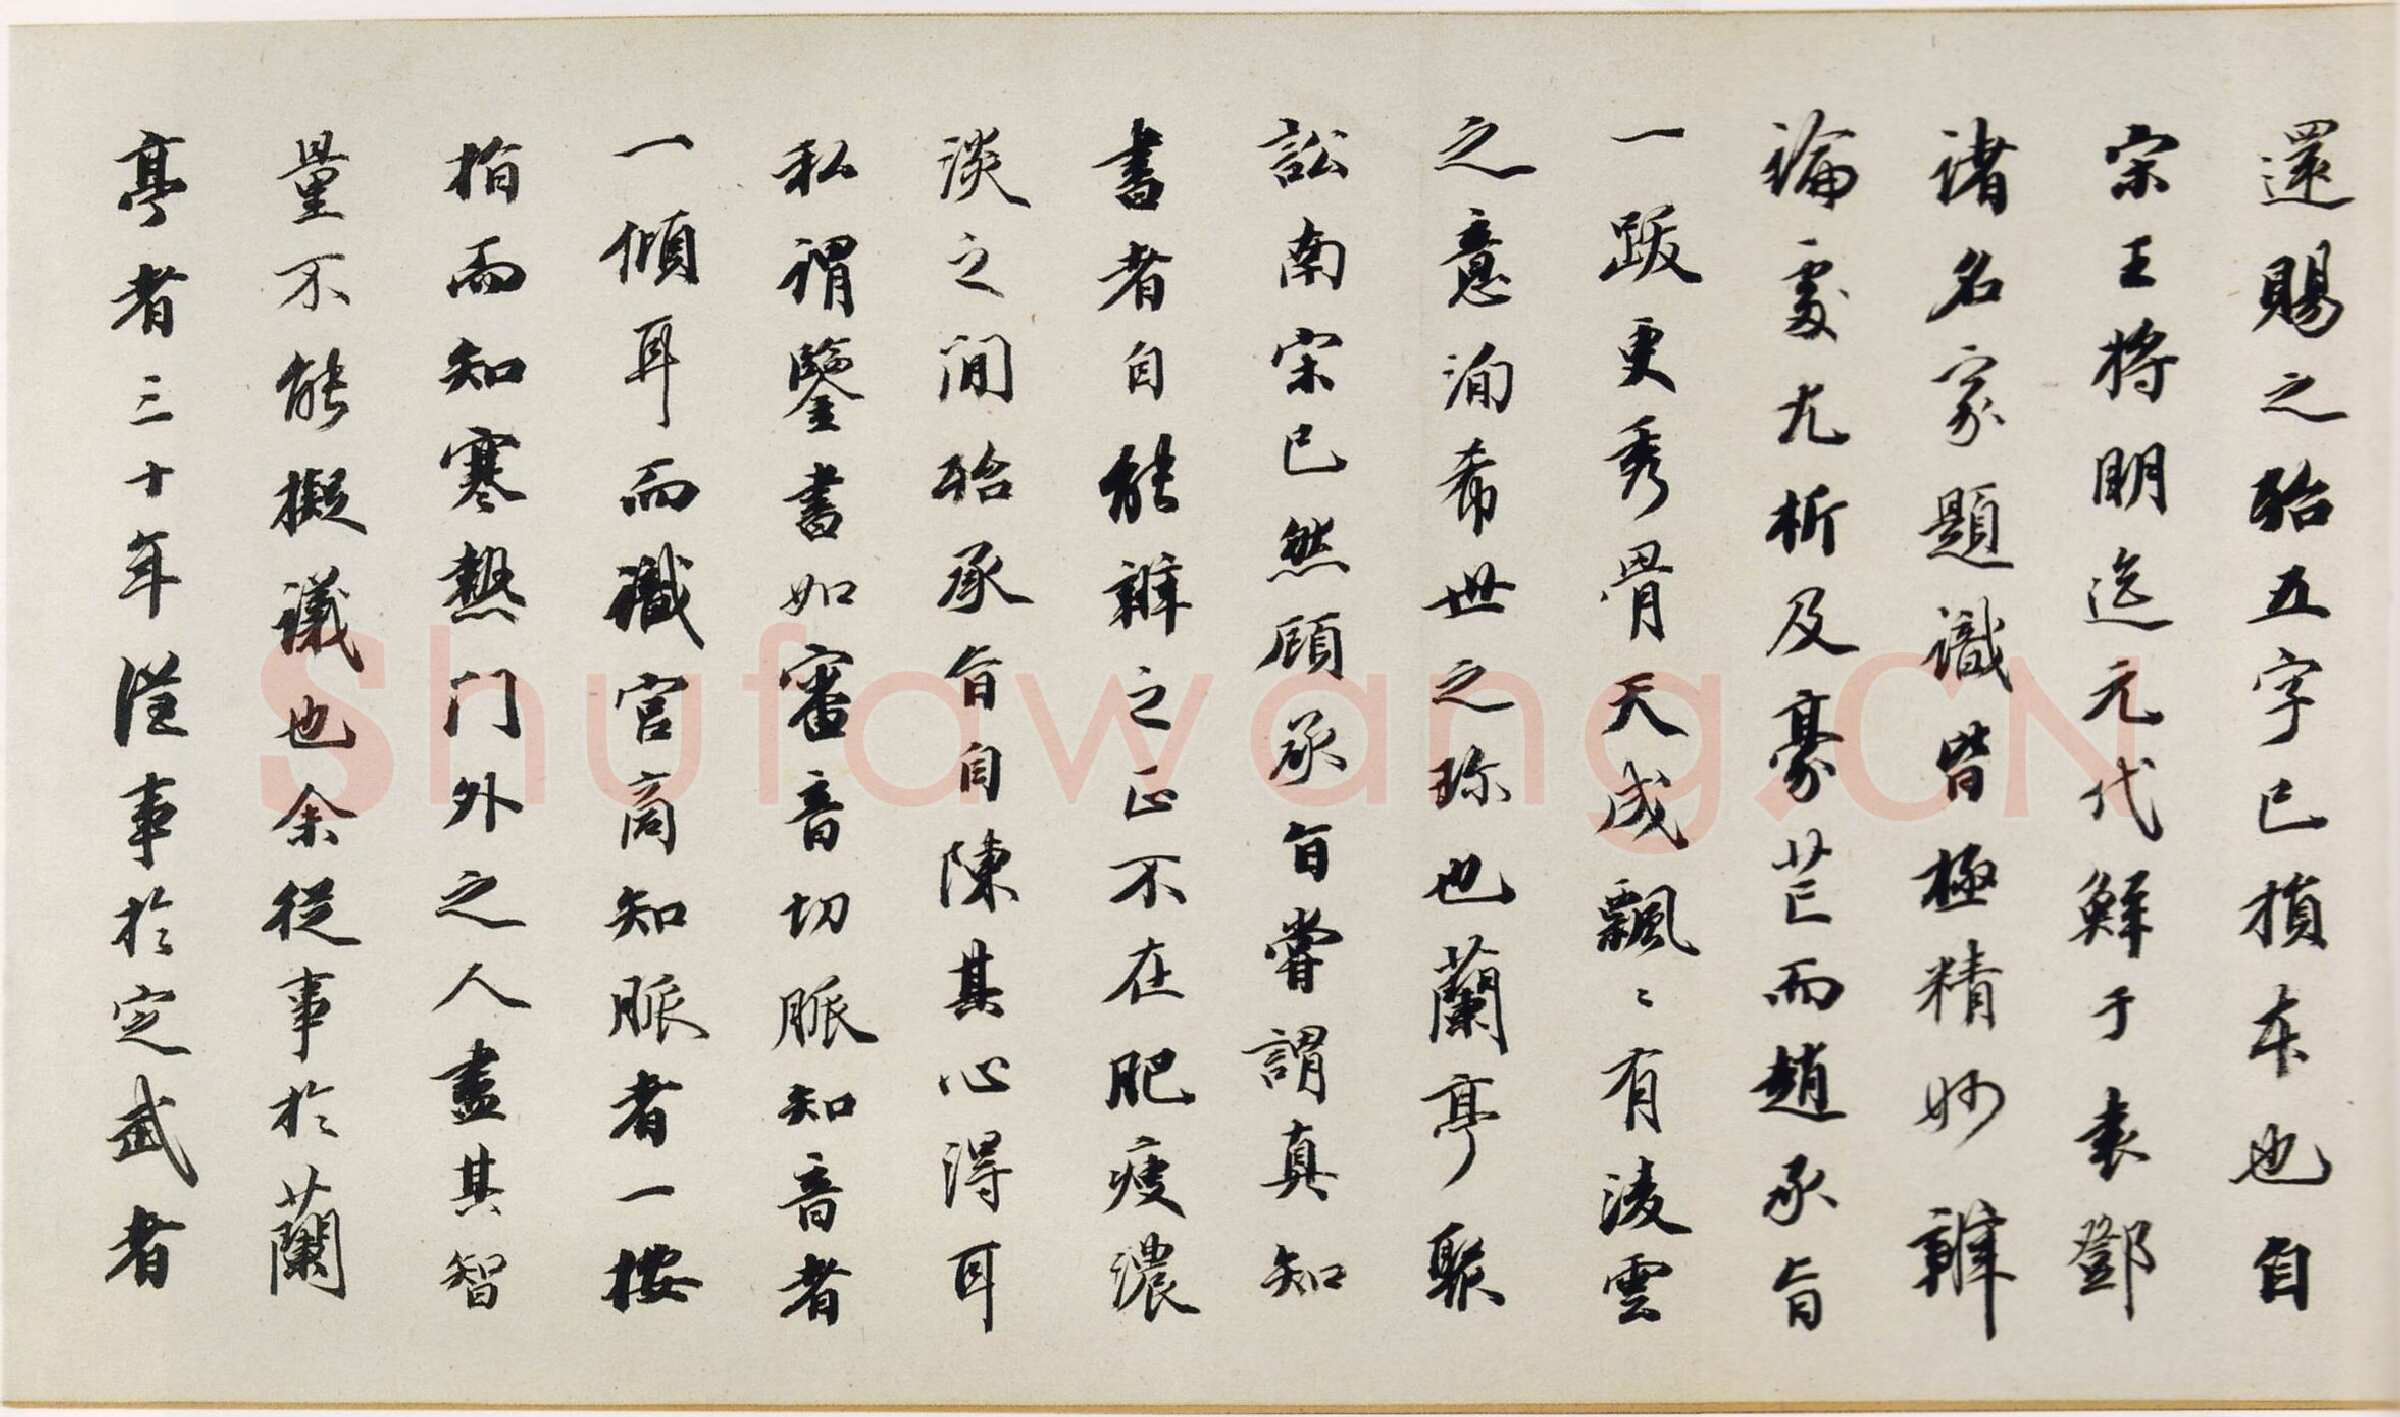 還賜之殆五字已損本也自
宋王將明迄元代鮮于袁鄧
諸名家題識皆極精妙辨
論處尤析及豪芒而趙承旨
一跋更秀骨天成飄〻有淩雲
之意洵希世之珎也蘭亭聚
訟南宋已然顧承旨嘗謂真知
書者自能辨之正不在肥瘦濃
淡之間殆承旨自陳其心得耳
私謂鑒書如審音切脈知音者
一傾耳而識宮商知脈者一按
指而知寒熱門外之人盡其智
量不能擬議也余從事於蘭
亭者三十年從事於定武者
Shufawang.CN